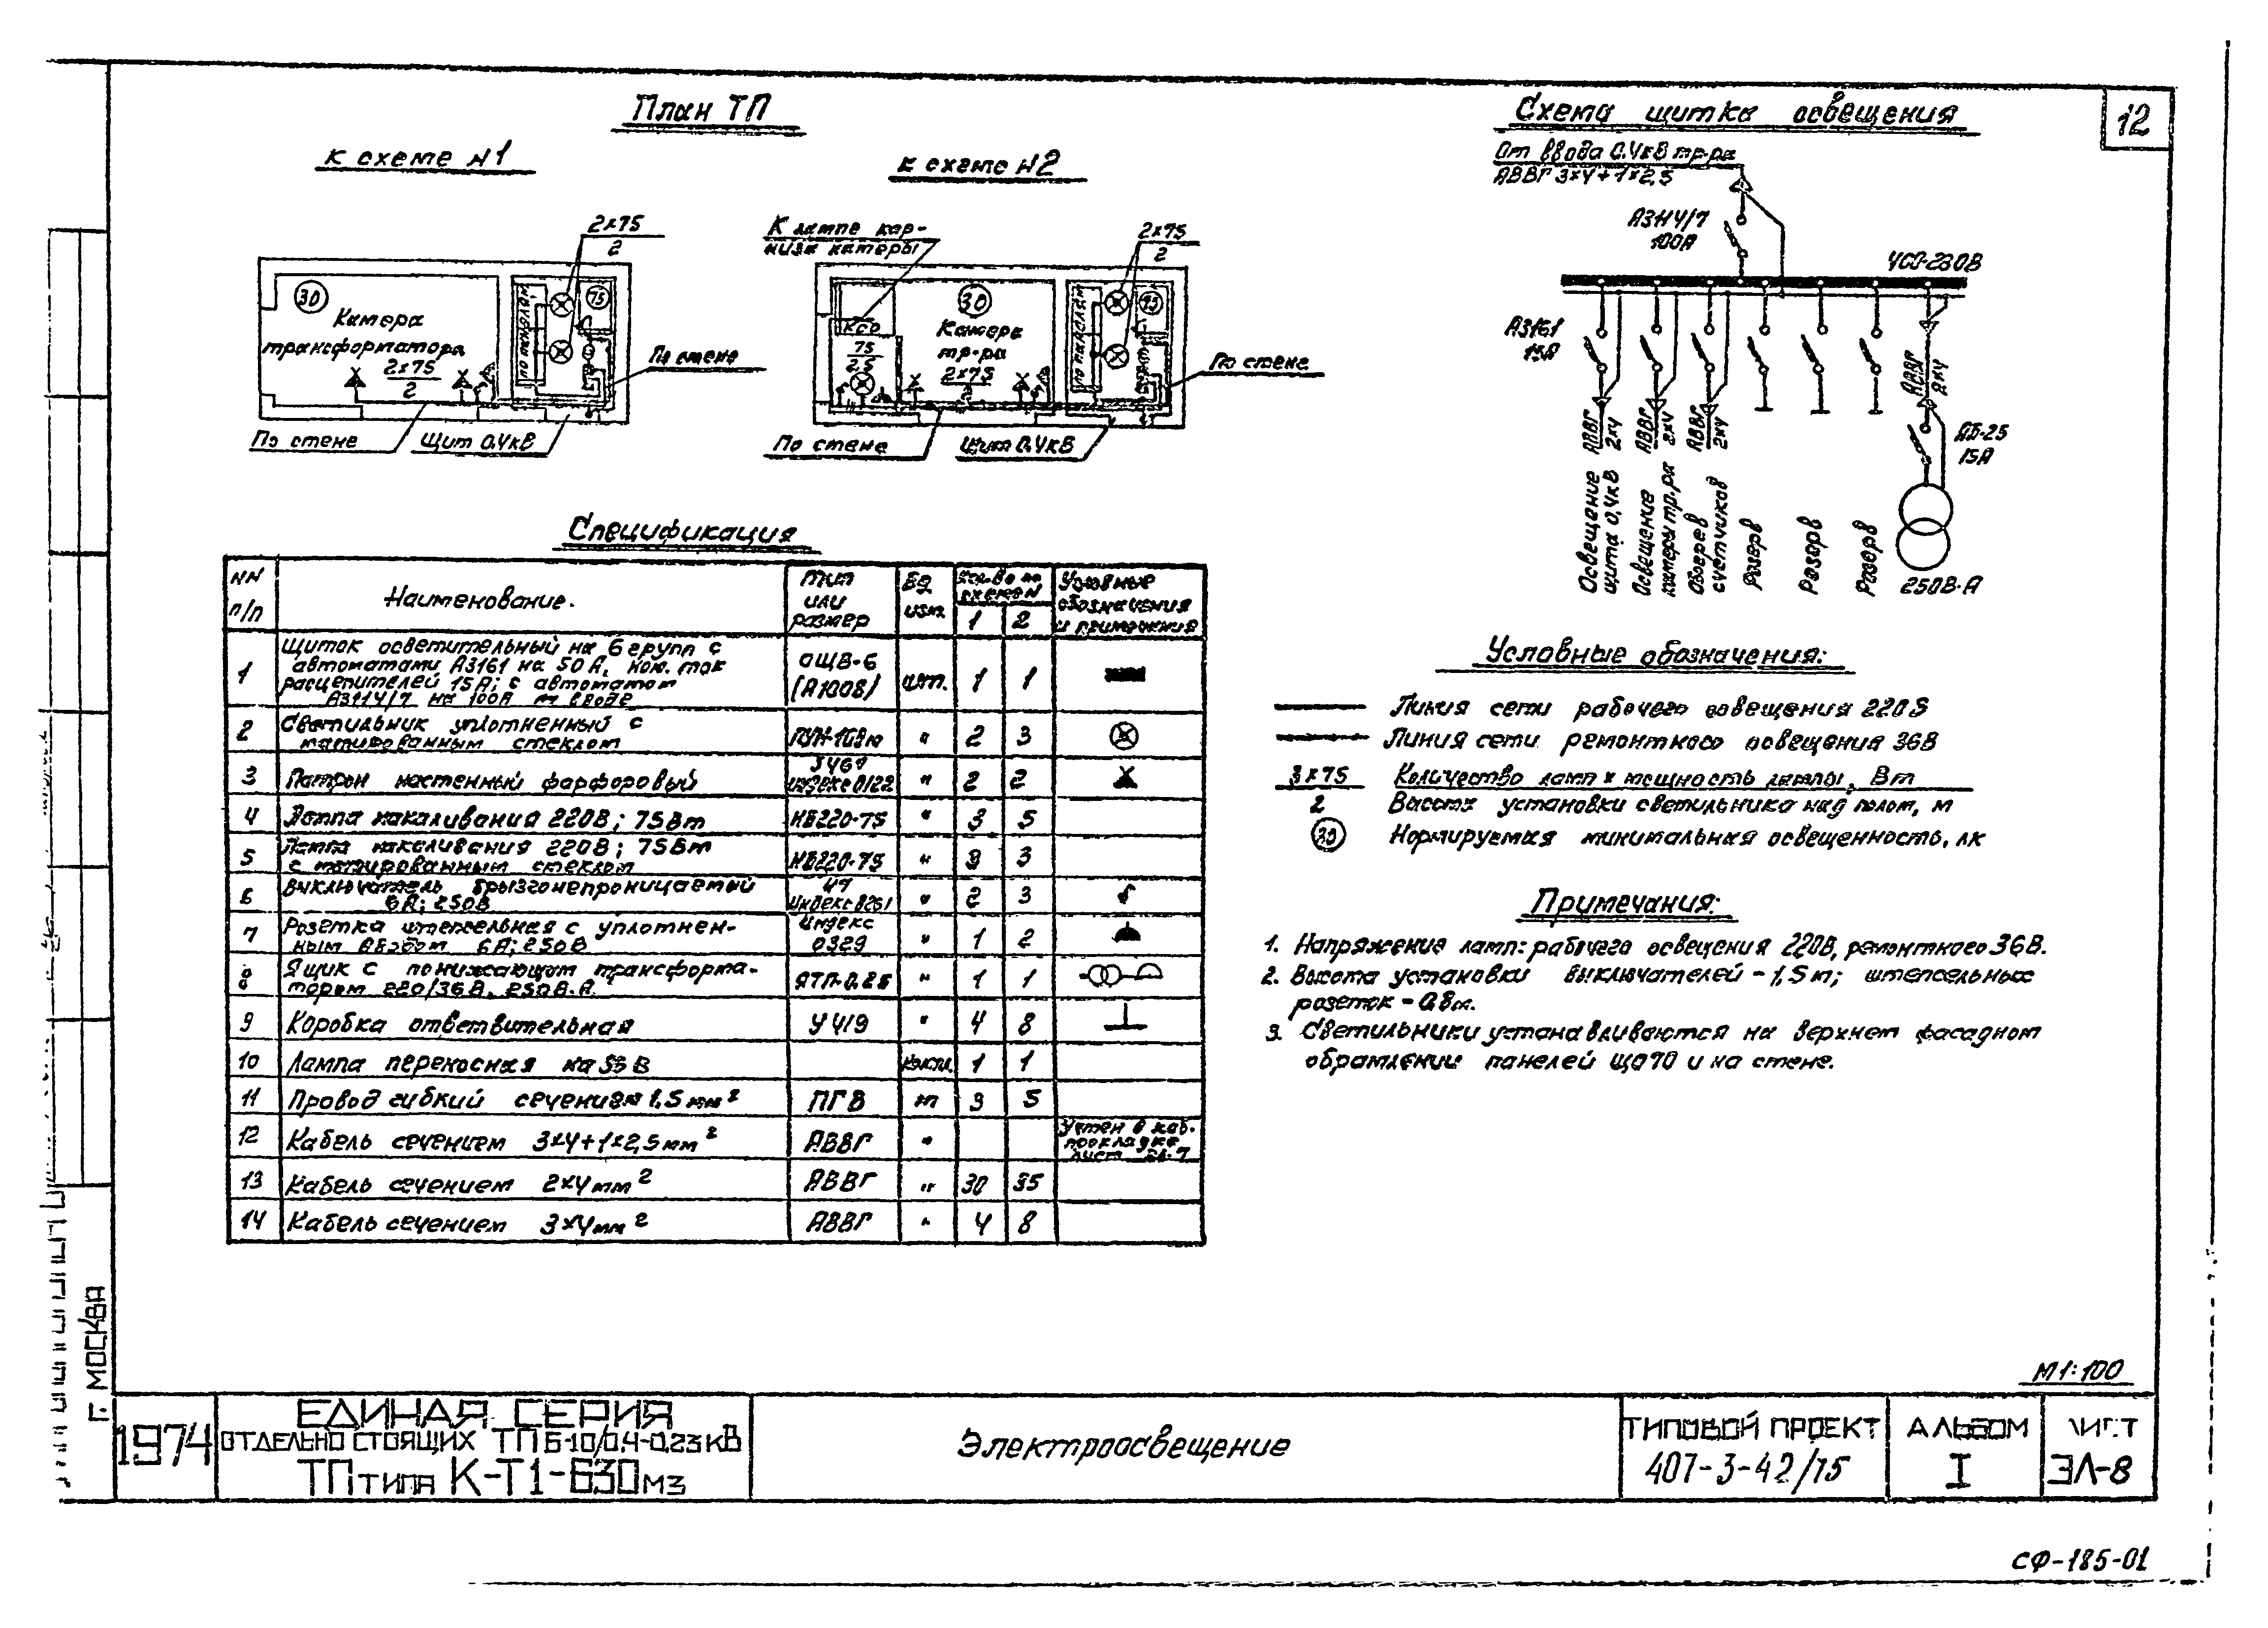 План ТП
к схеме N1
к схеме N2
2×75
2
30
75
Камера
трансформатора
2×75
2
По стене
По стене
Щит 0.4кВ
К лампе кар-
низа камеры
2×75
2
30
КСО
75
2,5
Камера
тр-ра
2×75
По стене
По стене
Щит 0.4кВ
Схема щитка освещения
12
От ввода 0.4кВ тр-ра
АВВГ 3×4+1×2,5
А3114/7
100А
УСО-230В
А3161
15А
АВВГ
2×4
АВВГ
2×4
АВВГ
2×4
АВВГ
2×4
АБ-25
15А
Освещение
щита 0,4кВ
Освещение
камеры тр.ра
Обогрев
счетчиков
Резерв
Резерв
Резерв
250В-А
Спецификация
NN п/п Наименование. Тип или размер Ед изм. Кол-во по схеме N 1 2 Условные обозначения и примечания
1 Щиток осветительный на 6 групп с
автоматами А3161 на 50А, ном. ток
расцепителей 15А; с автоматом
А3114/7 на 100А на вводе ОЩВ-6 (А1008) шт. 1 1
2 Светильник уплотненный с
матированным стеклом " 2 3
3 Патрон настенный фарфоровый индекс 0122 " 2 2
4 Лампа накаливания 220В; 75Вт НБ220-75 " 3 5
5 Лампа накаливания 220В; 75Вт
с матированным стеклом НБ220-75 " 3 3
6 Выключатель брызгонепроницаемый
6А; 250В Индекс 8261 " 2 3
7 Розетка штепсельная с уплотнен-
ным вводом 6А; 250В Индекс 0329 " 1 2
8 Ящик с понижающим трансформа-
тором 220/36В, 250В.А. ЯТП-0.25 " 1 1
9 Коробка ответвительная У419 " 4 8
10 Лампа переносная на 36В компл. 1 1
11 Провод гибкий сечением 1,5мм² ПГВ м 3 5
12 Кабель сечением 3×4+1×2,5мм² АВВГ " Учтен в каб. прокладке лист ЭЛ-7
13 Кабель сечением 2×4мм² АВВГ " 30 35
14 Кабель сечением 3×4мм² АВВГ " 4 8
Условные обозначения:
Линия сети рабочего освещения 220В
Линия сети ремонтного освещения 36В
3×75 Количество ламп × мощность лампы, Вт
2 Высота установки светильника над полом, м
30 Нормируемая минимальная освещенность, лк
Примечания:
1. Напряжение ламп: рабочего освещения 220В, ремонтного 36В.
2. Высота установки выключателей - 1,5м; штепсельных
розеток - 0,8м.
3. Светильники устанавливаются на верхнем фасадном
обрамлении панелей ЩО70 и на стене.
М1:100
г. МОСКВА
1974
ЕДИНАЯ СЕРИЯ
ОТДЕЛЬНО СТОЯЩИХ ТП 6-10/0,4-0,23кВ
ТП типа К-Т1-630М3
Электроосвещение
ТИПОВОЙ ПРОЕКТ
407-3-42/75
АЛЬБОМ
I
ЛИСТ
ЭЛ-8
СФ-185-01